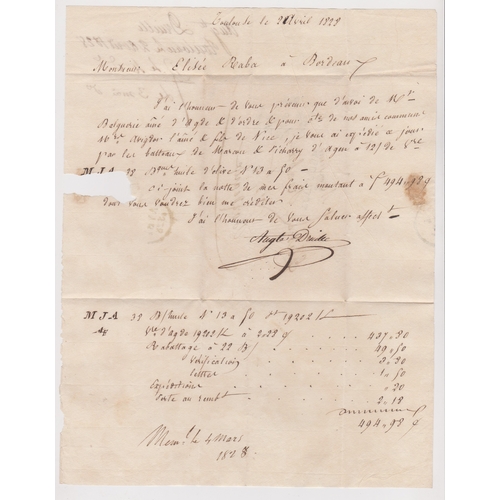 Toulouse le 2 Avril 1828
Monsieur Elisée Raba à Bordeaux
J'ai l'honneur de vous prévenir que d'avoi de Mr
Belguerie ainé d'Agde & d'ordre & pour cte de nos amis communs
MM. Avigdor l'ainé & fils de Nice, je vous ai expédié ce jour
par les batteaux de Marcou & d'Agen à 12f de Vre
MJA 38 Bques huile d'olive No 13 a 50
ci joint la notte de mes frais montant à f 494.98
dont vous voudrez bien me créditer
J'ai l'honneur de vous saluer affectt
MJA 38 B/huile No 13 a 50 pt 19202 k
Vre d'Agde 19202 k à 2.28 437.80
Rabattage à 22 49.50
vérification 3.80
lettre 1.50
Expéditions .20
Porte au rembt 2.18
494.98
le 4 Mars
1828